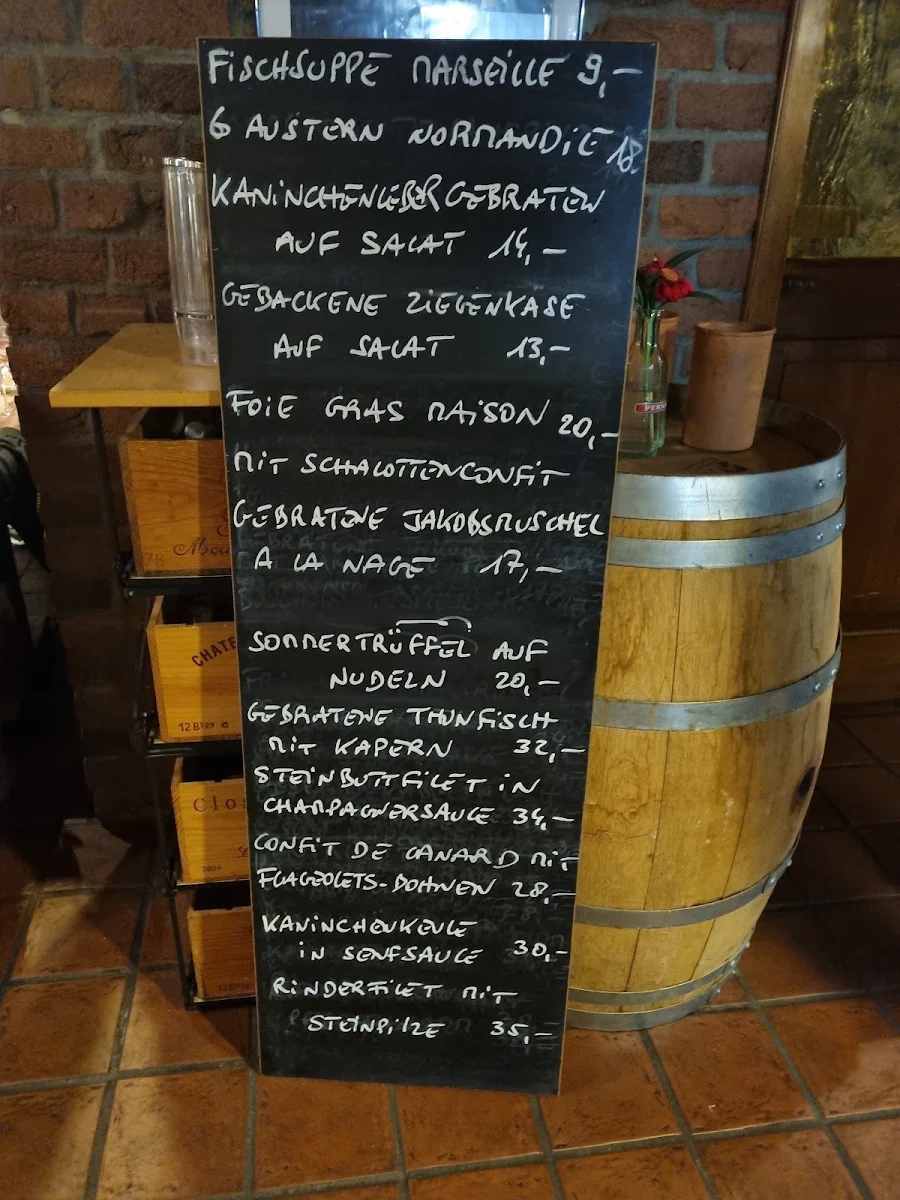 FISCHSUPPE MARSEILLE 9,-
6 AUSTERN NORMANDIE 18.
KANINCHENLEBER GEBRATEN
AUF SALAT 14,-
GEBACKENE ZIEGENKASE
AUF SALAT 13,-
FOIE GRAS MAISON 20,-
MIT SCHALOTTENCONFIT
GEBRATENE JAKOBSMUSCHEL
A LA NAGE 17,-
SOMMERTRÜFFEL AUF
NUDELN 20,-
GEBRATENE THUNFISCH
MIT KAPERN 32,-
STEINBUTTFILET IN
CHAMPAGNERSAUCE 34,-
CONFIT DE CANARD MIT
FLAGEOLETS-BOHNEN 28,-
KANINCHENKEULE
IN SENFSAUCE 30,-
RINDERFILET MIT
STEINPILZE 35,-
CHATE
12 Btles
Clos
2005
PERN